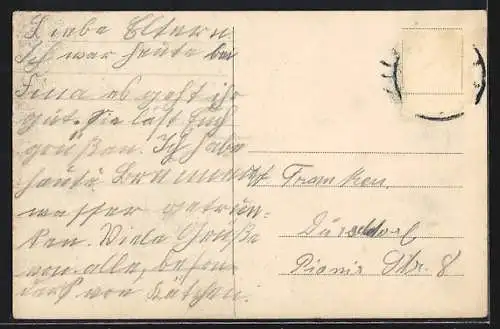 Liebe Eltern
Ich war heute bei
Fina es geht ihr
gut. Sie läst Euch
grüßen. Ich habe
heute
wasser getrun-
ken. Viele Grüße
von alle, beson
ders von Kätchen.
Franken,
Düsseldorf
Pionir Str. 8